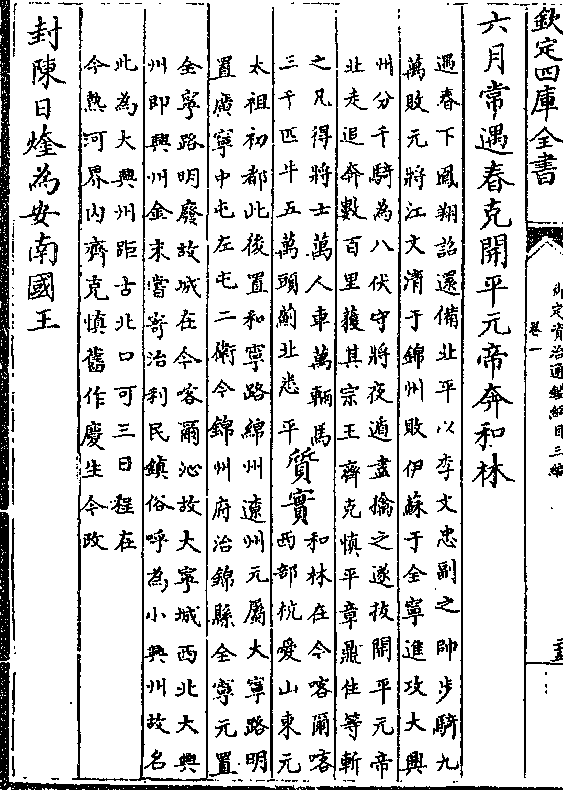 欽定四庫全書
御定資治通鑑綱目三編
卷一
六月常遇春克開平元帝奔和林
遇春下鳳翔詔還備北平以李文忠副之帥步騎九
萬敗元將江文清于錦州敗伊蘇于全寧進攻大興
州分千騎為八伏守將夜遁盡擒之遂拔開平元帝
北走追奔數百里獲其宗王齊克慎平章鼎住等斬
之凡得將士萬人車萬輛馬
三千匹牛五萬頭薊北悉平
質實
和林在今喀爾喀
西部杭愛山東元
太祖初都此後置和寧路錦州遼州元屬大寧路明
置廣寧中屯左屯二衛今錦州府治錦縣全寧元置
全寧路明廢故城在今喀爾沁故大寧城西北大興
州即興州金末嘗寄治利民鎮俗呼為小興州故名
此為大興州距古北口可三日程在
今熱河界內齊克慎舊作慶生今改
封陳日煃為安南國王